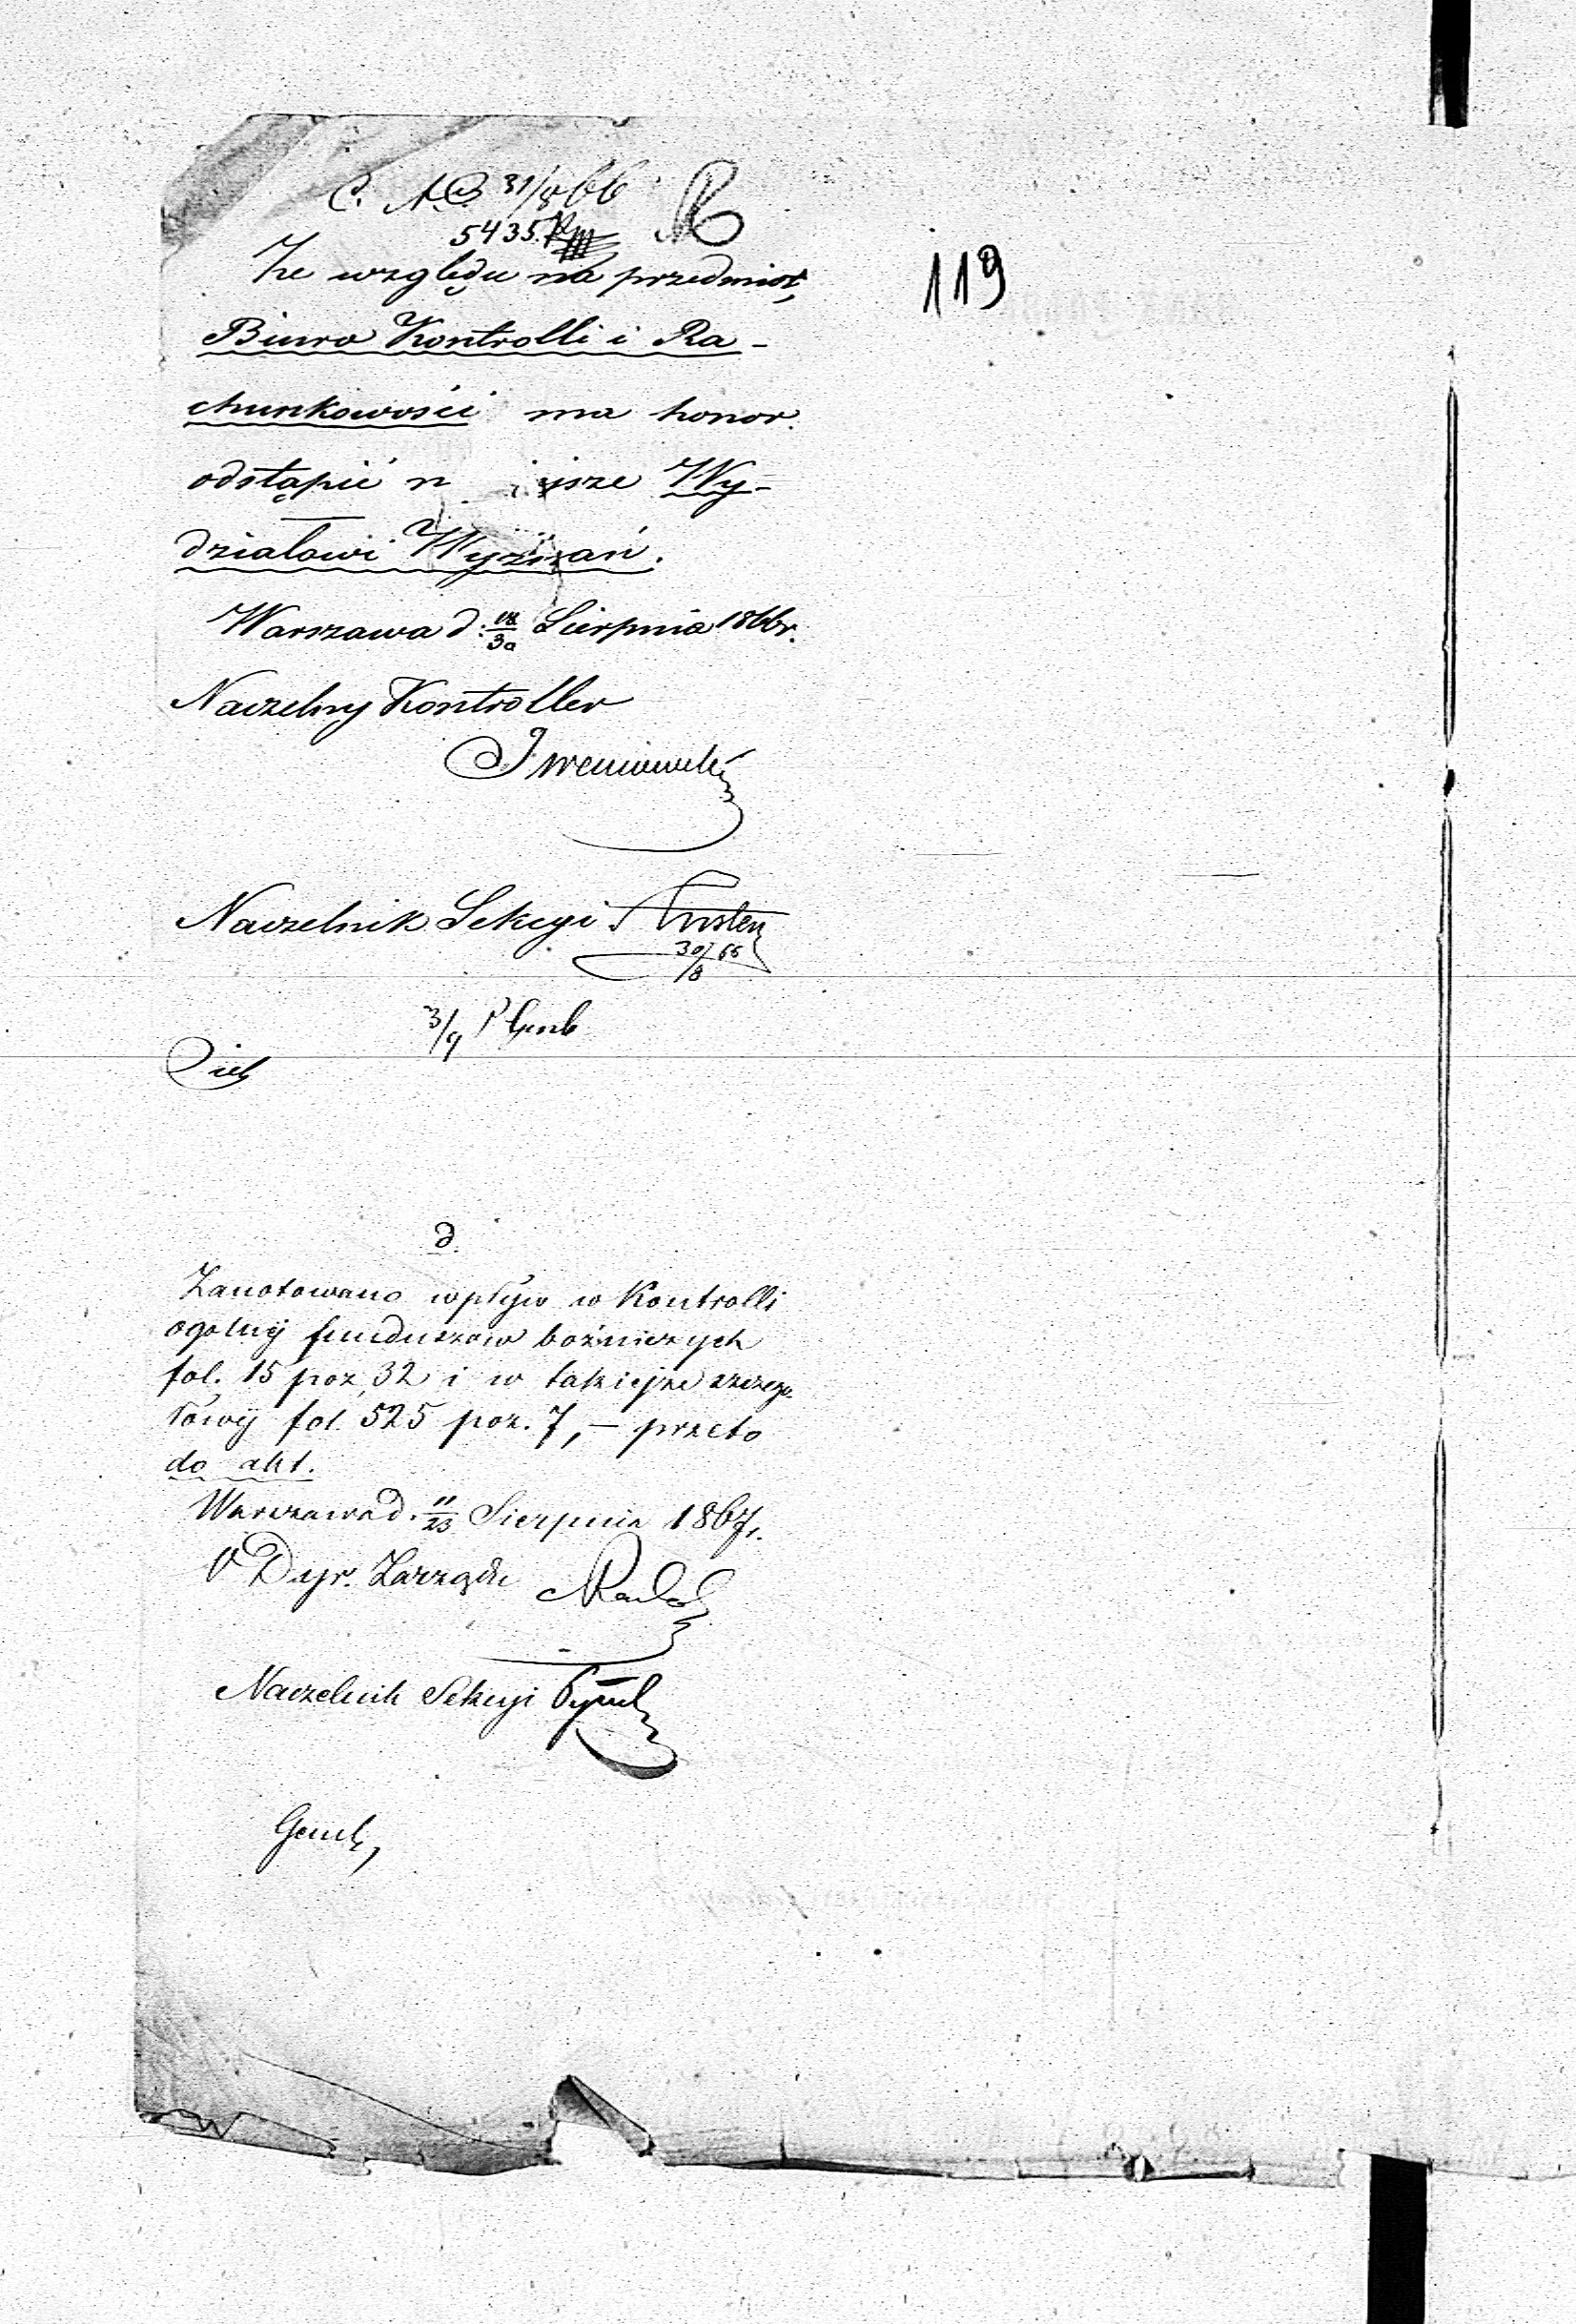 31/8 66
5435
119
Ze względu na przedmiot,
Biuro Kontrolli i Ra-
chunkowości ma honor
odstąpić n isze Wy-
działowi Wyznań.
Warszawa d. 18/30 Sierpnia 1866 r.
Naczelny Kontroller
Naczelnik Sekcyi
30/8 66
3/9
d
Zanotowano wpływ w Kontrolli
ogólnéj funduszów bóżniczych
fol. 15 poz 32 i w takiejże szczegó-
łowéj fol. 525 poz. 7, — przeto
do akt.
Warszawa d. 11/23 Sierpnia 1867 r.
Dyr. Zarządu
Naczelnik Sekcyi